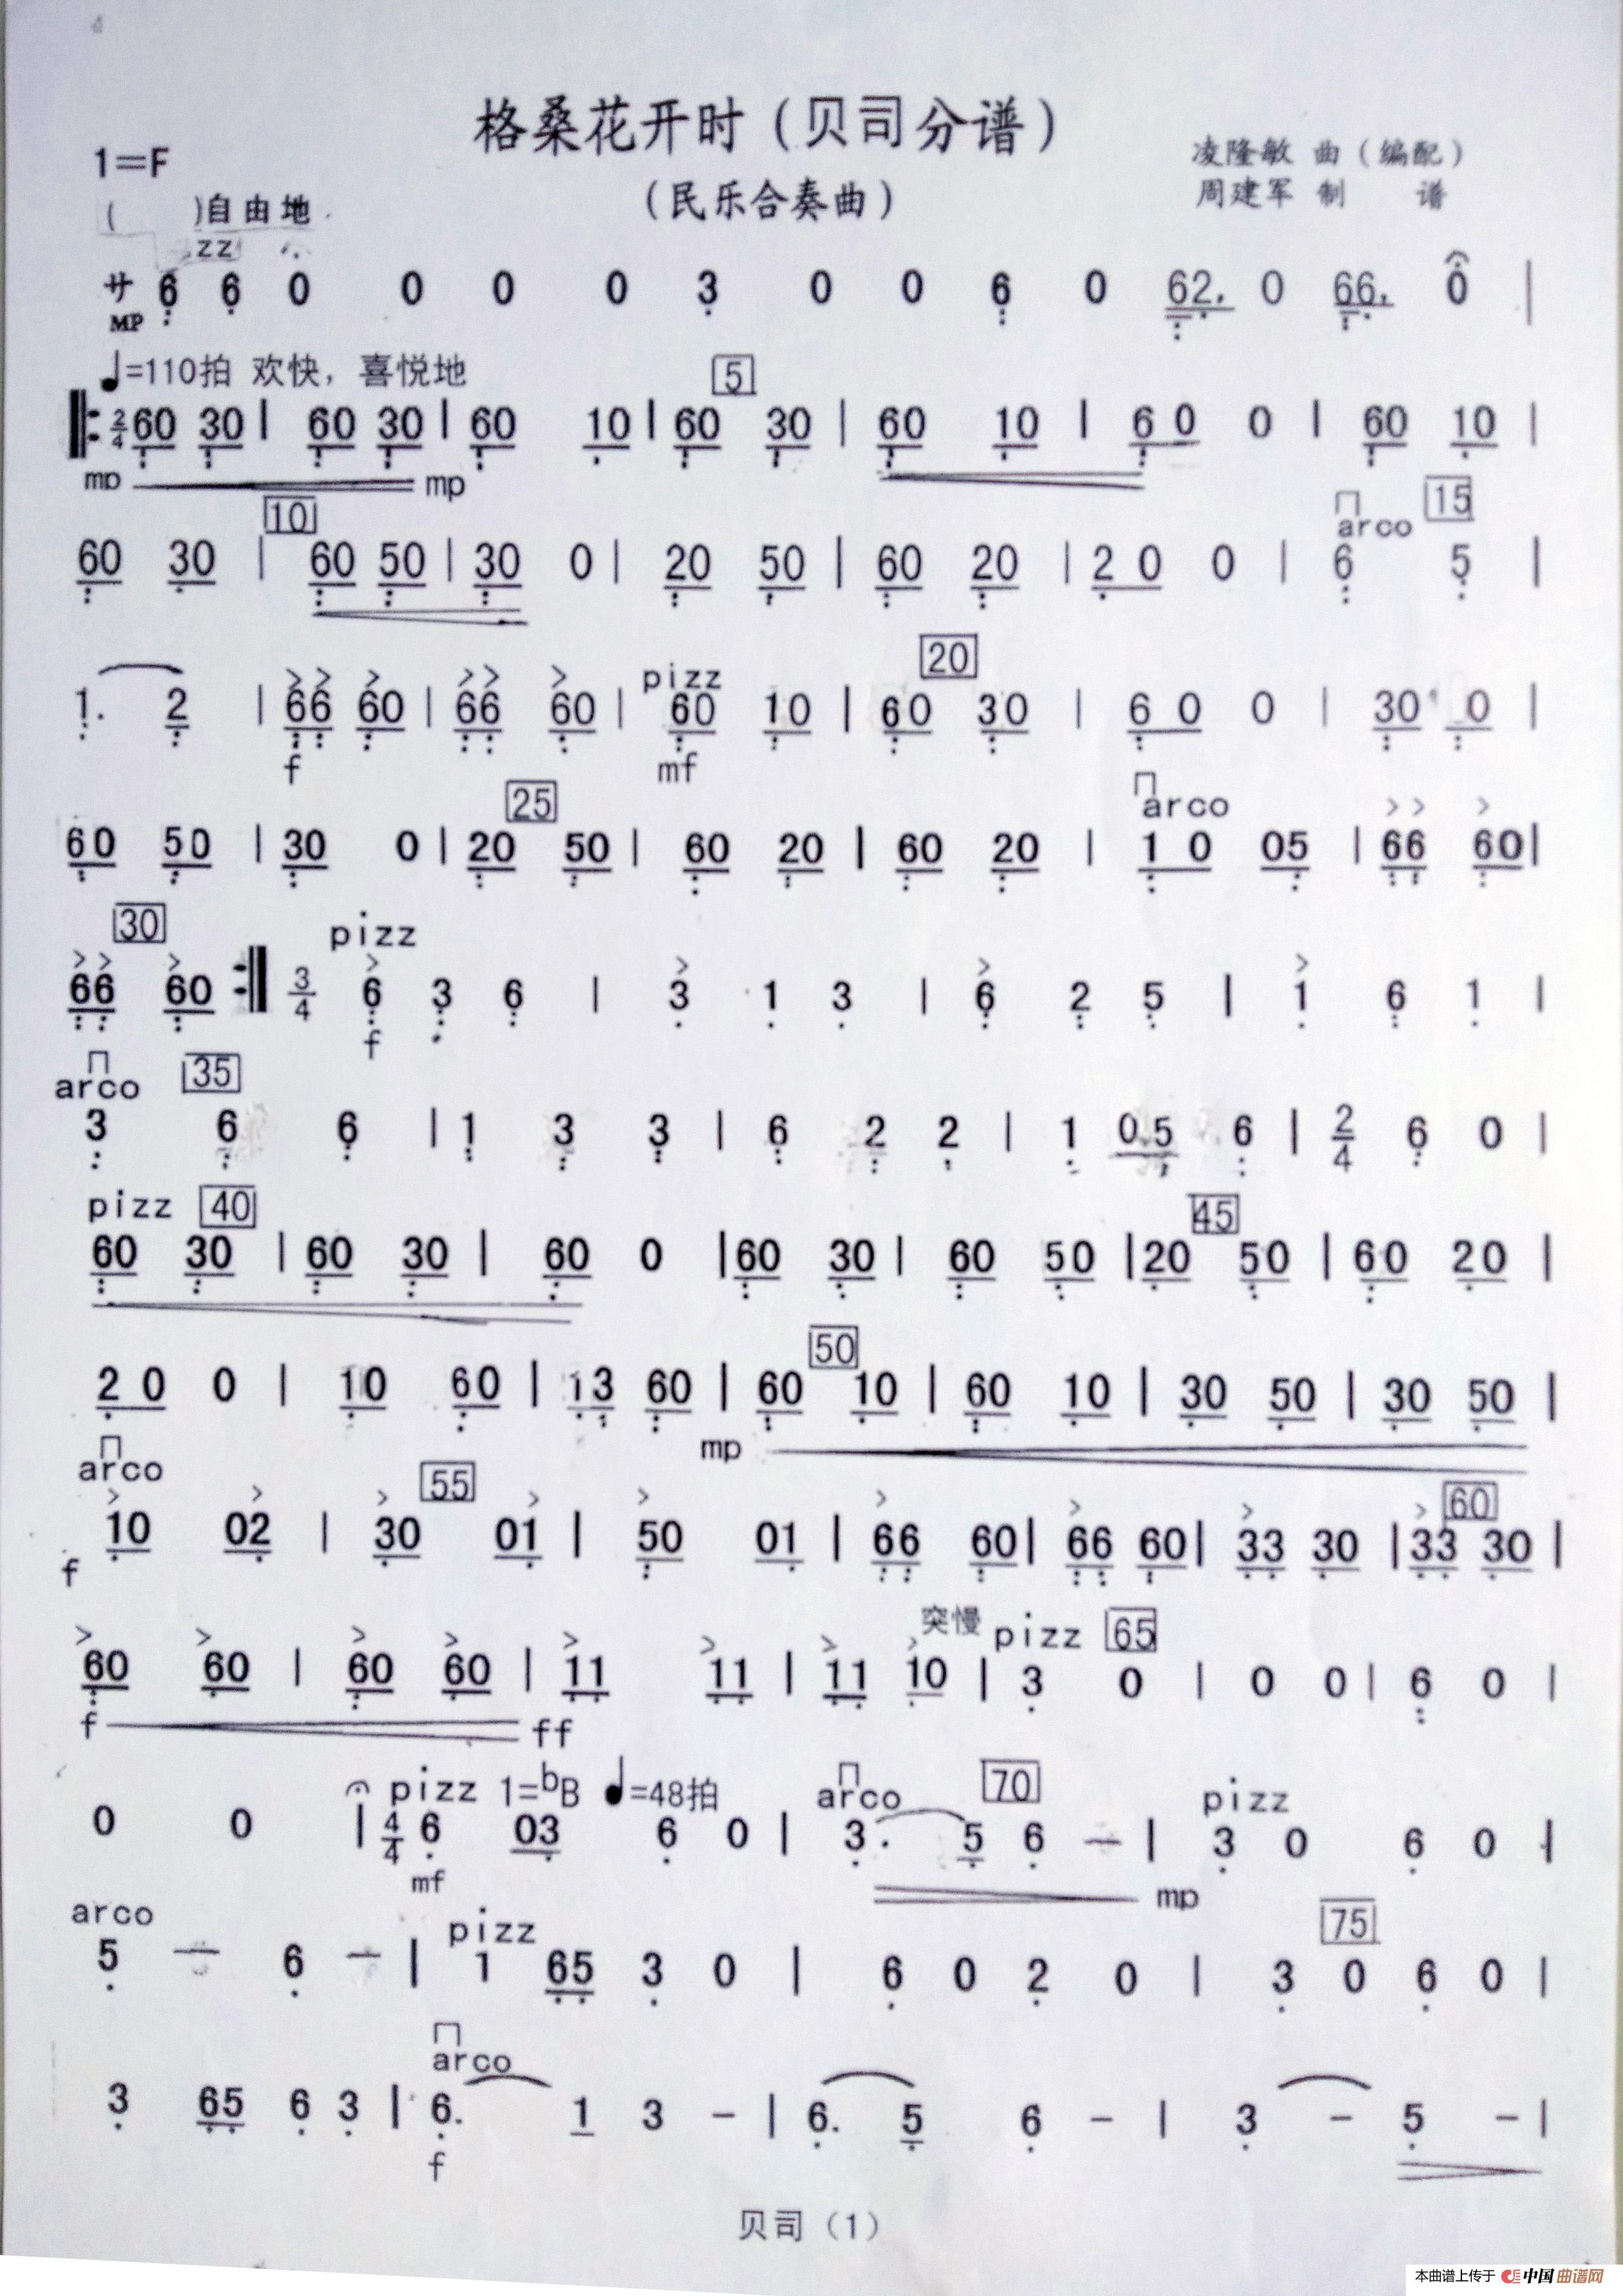 4
格桑花开时（贝司分谱）
1=F
凌隆敏 曲（编配）
（民乐合奏曲）
周建军 制 谱
( )自由地
zz
サ 6 6 0 0 0 0 3 0 0 6 0 62. 0 66. 0 |
MP
♩=110拍 欢快，喜悦地 5
2/4 60 30 | 60 30 | 60 10 | 60 30 | 60 10 | 60 0 | 60 10 |
mp mp
10 arco 15
60 30 | 60 50 | 30 0 | 20 50 | 60 20 | 20 0 | 6 5 |
pizz 20
1. 2 | 66 60 | 66 60 | 60 10 | 60 30 | 60 0 | 30 0 |
f mf
25 arco
60 50 | 30 0 | 20 50 | 60 20 | 60 20 | 10 05 | 66 60 |
30 pizz
66 60 :| 3/4 6 3 6 | 3 1 3 | 6 2 5 | 1 6 1 |
f
arco 35
3 6 6 | 1 3 3 | 6 2 2 | 1 05 6 | 2/4 6 0 |
pizz 40 45
60 30 | 60 30 | 60 0 | 60 30 | 60 50 | 20 50 | 60 20 |
50
20 0 | 10 60 | 13 60 | 60 10 | 60 10 | 30 50 | 30 50 |
mp
arco 55 60
10 02 | 30 01 | 50 01 | 66 60 | 66 60 | 33 30 | 33 30 |
f
突慢 pizz 65
60 60 | 60 60 | 11 11 | 11 10 | 3 0 | 0 0 | 6 0 |
f ff
pizz 1=bB ♩=48拍 arco 70 pizz
0 0 | 4/4 6 03 6 0 | 3. 5 6 — | 3 0 6 0 |
mf mp
arco pizz 75
5 — 6 — | 1 65 3 0 | 6 0 2 0 | 3 0 6 0 |
arco
3 65 6 3 | 6. 1 3 - | 6. 5 6 - | 3 - 5 - |
f
贝司（1）
本曲谱上传于 中国曲谱网